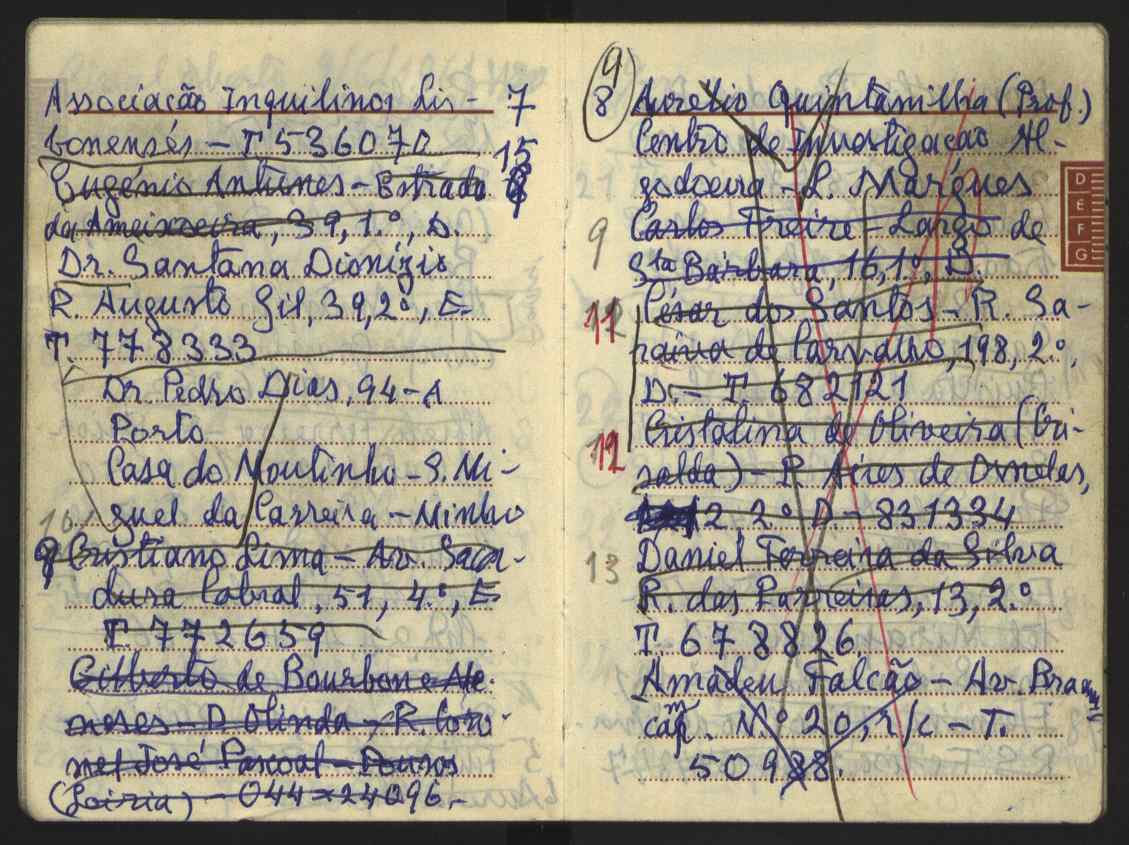 Associação Inquilinos Lis- 7
bonenses - T 536070
15
Eugénio Antunes - Estrada
da Ameixoeira, 39, 1.º, D.
Dr. Santana Dionízio
R. Augusto Gil, 39, 2º, E-
T. 778333
Dr. Pedro Dias, 94-A
Porto
Casa do Moutinho - S. Mi-
guel da Carreira - Minho
10
9 Cristiano Lima - Av. Saca-
dura Cabral, 51, 4.º, E
T. 772659
Gilberto de Bourbon e Me-
neses - D. Olinda - R. Coro-
nel José Pascoal - Pousos
(Leiria) - 044 - 24096 -
9
8 Aurélio Quintanilha (Prof.)
Centro de Investigação Al-
godoeira - L. Marques
9 Carlos Freire - Largo de
Sta Bárbara, 16, 1º, D.
11 César dos Santos - R. Sa-
raiva de Carvalho, 198, 2.º,
D. - T. 682121
12 Cristalina de Oliveira (Gri-
salda) - R. Aires de Ornelas,
12 2º D - 831334
13 Daniel Ferreira da Silva
R. das Parreiras, 13, 2.º
T. 678826
Amadeu Falcão - Av. Braam
camp. N.º 20, r/c - T.
50988.
D
E
F
G